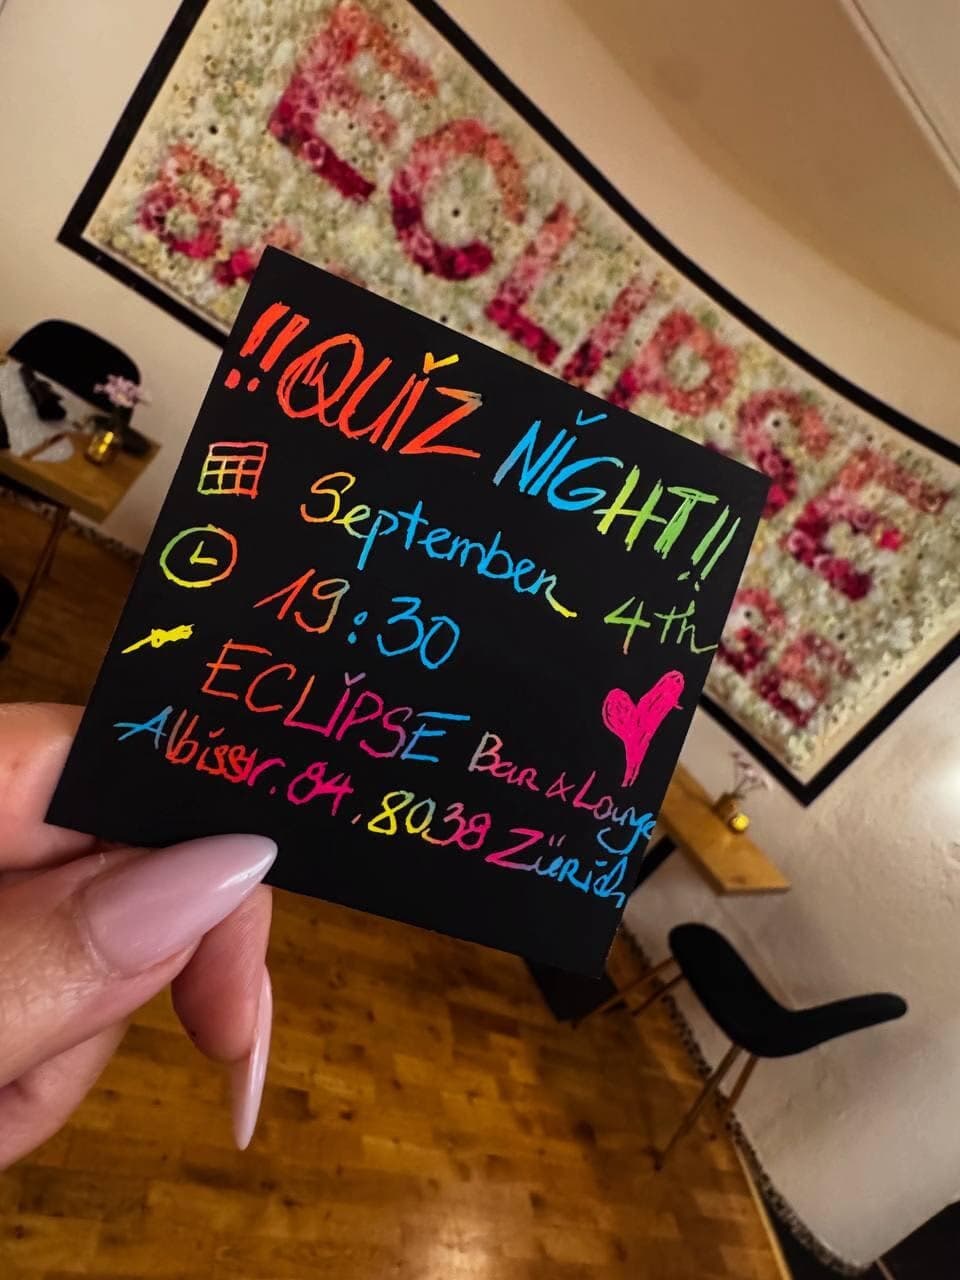 ECLIPSE
!!QUIZ NIGHT!!
September 4th
19:30
ECLIPSE Bar & Lounge
Albisstr. 84, 8038 Zürich